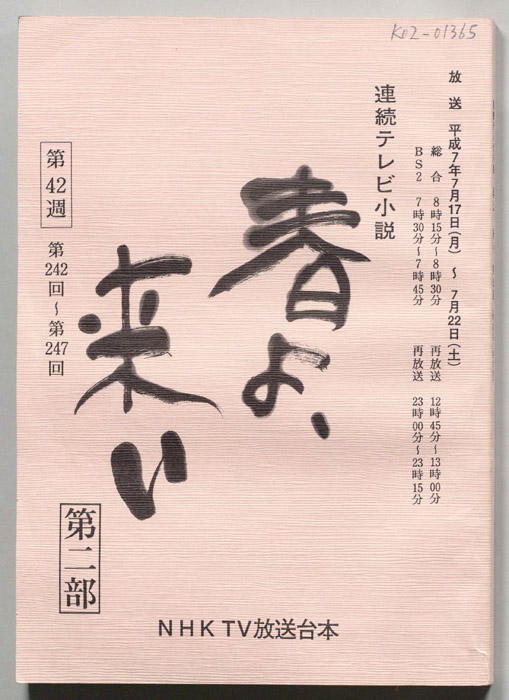 K02-01365
放送 平成7年7月17日(月) ~ 7月22日(土)
総合 8時15分~8時30分 再放送 12時45分~13時00分
BS2 7時30分~7時45分 再放送 23時00分~23時15分
連続テレビ小説
春よ、
来い
第42週
第242回~第247回
第二部
NHK TV放送台本